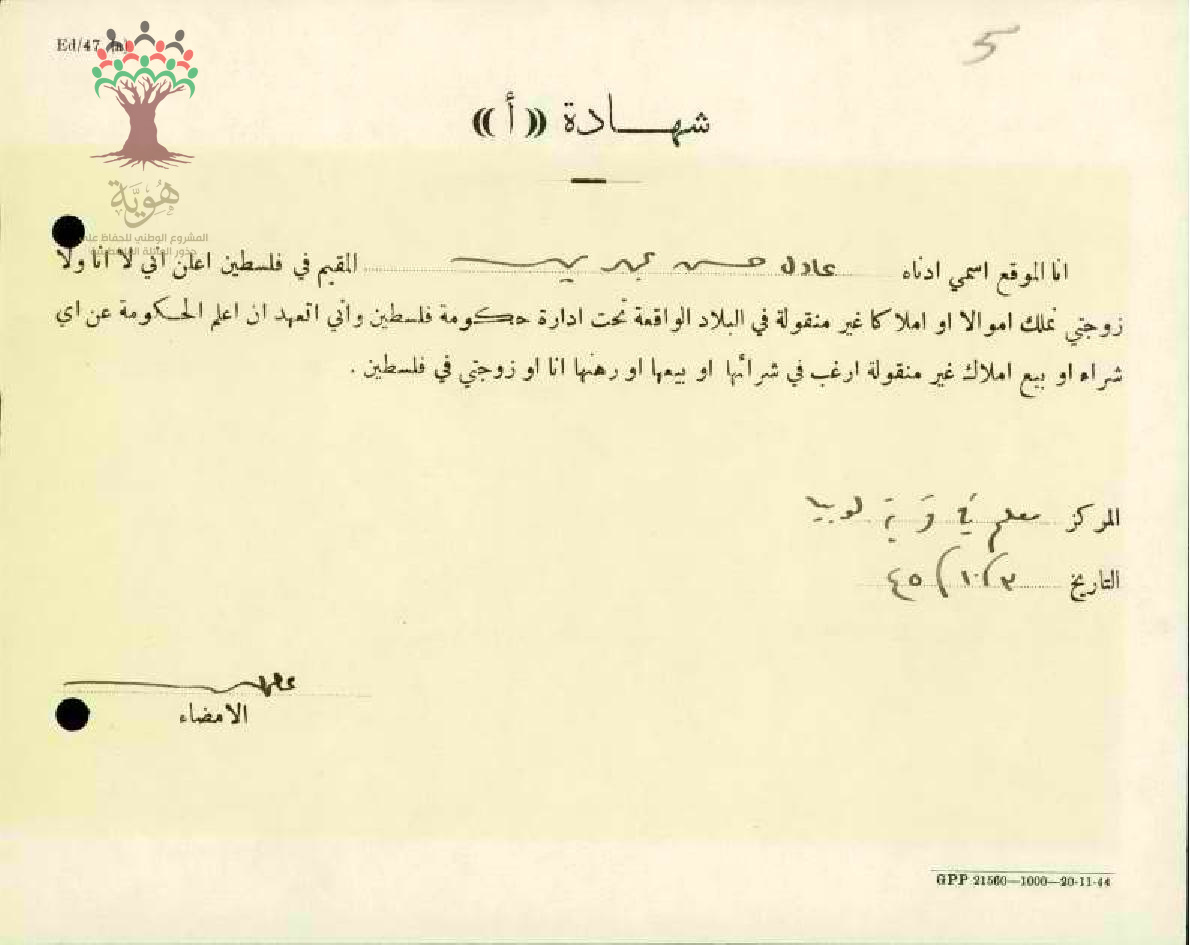 Ed/47 (a)
5
شهـــادة «أ»
هُوِيَّة
المشروع الوطني للحفاظ على
جذور العائلة الفلسطينية
انا الموقع اسمي ادناه عادل حسن المقيم في فلسطين اعلن اني لا انا ولا
زوجتي نملك اموالا او املاكا غير منقولة في البلاد الواقعة تحت ادارة حكومة فلسطين واني اتعهد ان اعلم الحكومة عن اي
شراء او بيع املاك غير منقولة ارغب في شرائها او بيعها او رهنها انا او زوجتي في فلسطين .
المركز معلم في قرية لوبيا
التاريخ ٣/١٠/٤٥
الامضاء
GPP 21560—1000—20-11-44